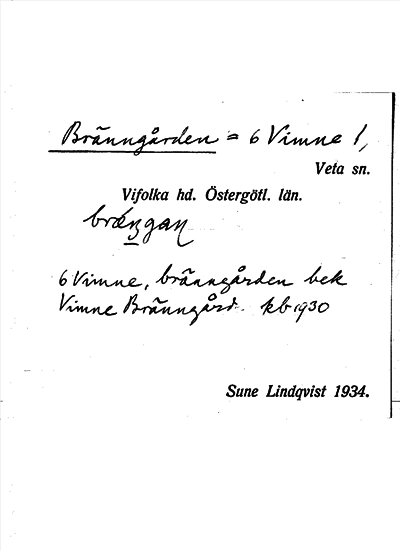 Bränngården = 6 Vimne 1,
Veta sn.
Vifolka hd. Östergötl. län.
6 Vimne, bränngården bek
Vimne Bränngård. kb 1930
Sune Lindqvist 1934.